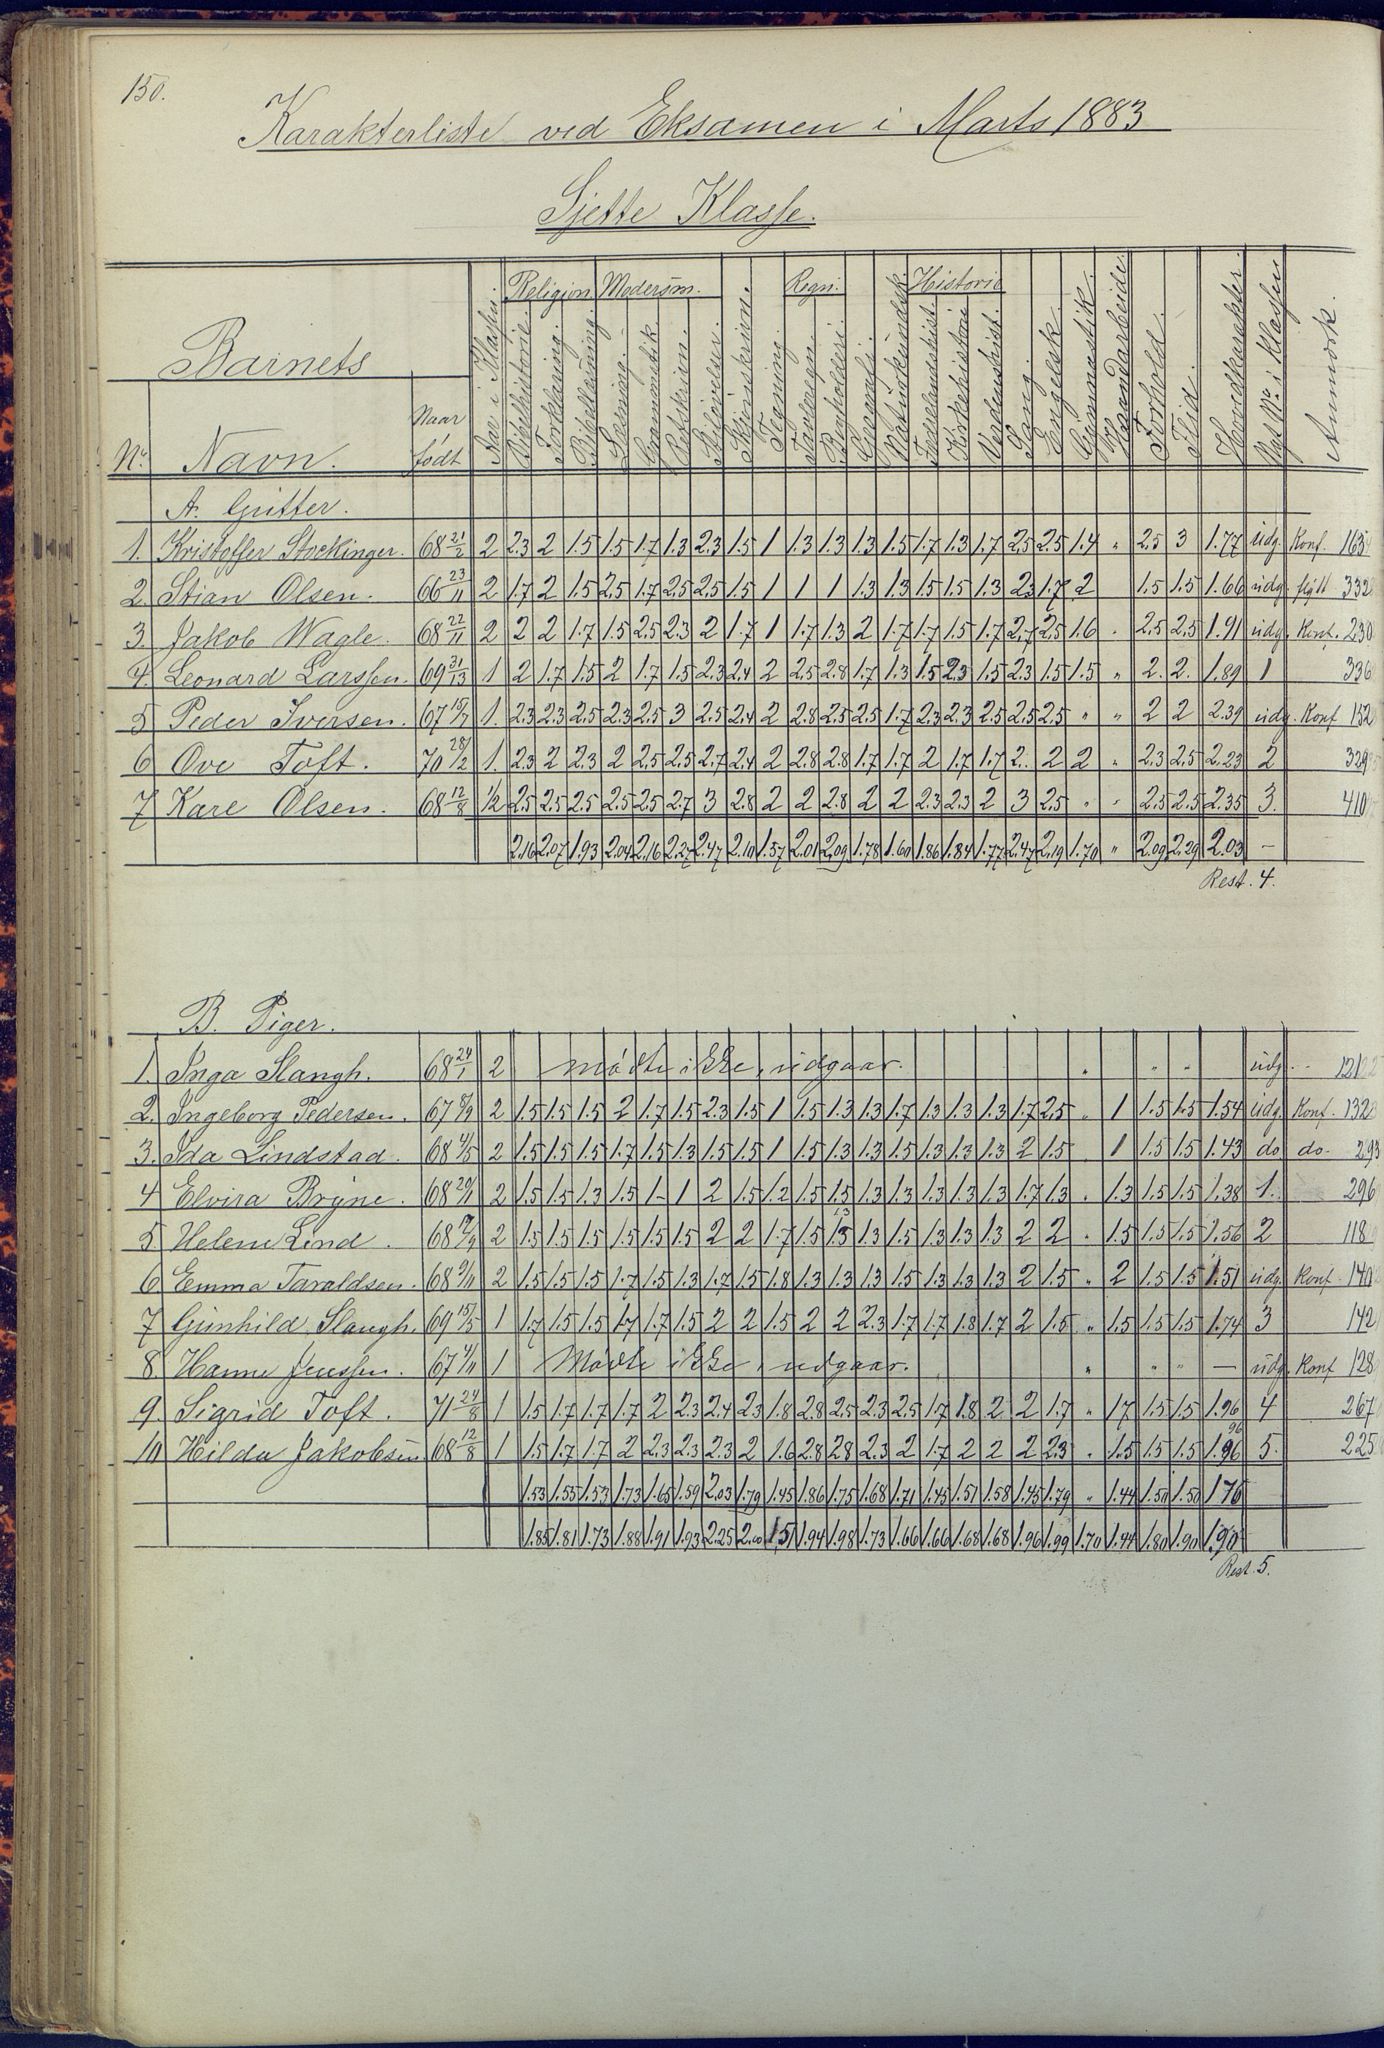 150.
Karakterliste ved Eksamen i Marts 1883
Sjette Klasse.
Barnets
Religion. Modersm. Regn. Historie
No. Navn. Naar født Aar i Klassen. Bibelhistorie. Forklaring. Bibellæsning. Læsning. Grammatik Retskrivn. Stiløvelser. Skjønskrivn. Tegning. Tavleregn. Bogholderi. Geografi. Naturkundsk. Fædrelandshist. Kirkehistorie Verdenshist. Sang. Engelsk. Gymnastik. Haandarbeide. Forhold. Flid. Hovedkarakter. Nyt No. i Klassen Anmærk.
A. Gutter.
1. Kristoffer Stockinger. 68 21/2 2 2.3 2 1.5 1.5 1.7 1.3 2.3 1.5 1 1.3 1.3 1.3 1.5 1.7 1.3 1.7 2.5 2.5 1.4 " 2.5 3 1.77 udg. Konf. 165
2. Stian Olsen. 66 23/11 2 1.7 2 1.5 2.5 1.7 2.5 2.5 1.5 1 1 1 1.3 1.3 1.5 1.5 1.3 2.3 1.7 2 1.5 1.5 1.66 udg. flytt 332
3. Jakob Wagle. 68 22/11 2 2 2 1.7 1.5 2.5 2.3 2 1.7 1 1.7 1.3 2 1.7 1.7 1.5 1.7 2.7 2.5 1.6 " 2.5 2.5 1.91 udg. Konf. 230
4. Leonard Larssen. 69 31/13 1. 2 1.7 1.5 2 1.7 1.5 2.3 2.4 2 2.5 2.8 1.7 1.3 1.5 2.3 1.5 2.3 1.5 1.5 " 2. 2. 1.89 1 336
5 Peder Iversen. 67 15/7 1. 2.3 2.3 2.5 2.3 2.5 3 2.5 2.4 2 2.8 2.5 2.5 1.7 2.3 2.3 2.5 2.5 2.5 " " 2 2 2.39 udg. Konf 152
6 Ove Toft. 70 28/2 1. 2.3 2 2.3 2 2.5 2.5 2.7 2.4 2 2.8 2.8 1.7 1.7 2 1.7 1.7 2. 2 2 " 2.3 2.5 2.23 2 329
7 Kare Olsen. 68 12/8 1/2 2.5 2.5 2.5 2.5 2.5 2.7 3 2.8 2 2 2.8 2 2 2.3 2.3 2 3 2.5 " " 2.5 2.5 2.35 3. 410
2.16 2.07 1.93 2.04 2.16 2.27 2.47 2.10 1.57 2.01 2.09 1.78 1.60 1.86 1.84 1.77 2.47 2.19 1.70 " 2.09 2.29 2.03 –
Rest. 4.
B. Piger.
1. Inga Slangh. 68 24/1 2 mødte ikke, udgaar. " " " udg. 121
2. Ingeborg Pedersen. 67 8/9 2 1.5 1.5 1.5 2 1.7 1.5 2.3 1.5 1 1.5 1.3 1.3 1.7 1.3 1.3 1.3 1.7 2.5 " 1 1.5 1.5 1.54 udg. Konf. 132
3. Ida Lindstad. 68 4/5 2 1.5 1.5 1.5 1.7 1.5 1.3 1.5 1.5 1 1.5 1.3 1.3 1.5 1.3 1.3 1.3 2 1.5 " 1 1.5 1.5 1.43 do do. 293
4 Elvira Bryne. 68 29/11 2 1.5 1.5 1.3 1.5 1 1 2 1.5 1.2 1.5 1.5 1.3 1.3 1.3 1.3 1.3 1.7 1.3 " 1.3 1.5 1.5 1.38 1. 296
5 Helene Lind. 68 17/9 2 1.5 1.5 1.5 1.5 1.5 1.5 2 2 1.7 1.5 1.3 1.3 1.5 1.3 1.3 1.3 2 2 " 1.5 1.5 1.5 1.56 2 118
6 Emma Taraldsen. 68 9/11 2 1.5 1.5 1.5 1.7 1.5 1.3 1.7 1.5 1.8 1.3 1.3 1.3 1.5 1.3 1.3 1.3 2 1.5 " 2 1.5 1.5 1.51 udg. Konf. 140
7 Gunhild Slangh. 69 15/5 1 1.7 1.5 1.5 1.7 1.7 1.5 2 2 1.5 2 2 2.3 1.7 1.7 1.8 1.7 2 1.5 " 1.5 1.5 1.5 1.74 3 142
8. Hanne Jenssen. 67 4/11 1 Mødte ikke, udgaar. " " " – udg. Konf 128
9. Sigrid Toft. 71 24/8 1 1.5 1.7 1.7 1.7 2 2.3 2.4 2.3 1.8 2.8 2.5 2.3 2.5 1.7 1.8 2 2 1.7 " 1.7 1.5 1.5 1.96 4 267
10 Hilda Jakobsen 68 12/8 1 1.5 1.7 1.7 2 2.3 2.3 2.3 2 1.6 2.8 2.8 2.3 2 1.7 2 2 2 2.3 " 1.5 1.5 1.5 1.96 5. 225
1.53 1.55 1.53 1.73 1.65 1.59 2.03 1.79 1.45 1.86 1.75 1.68 1.71 1.45 1.51 1.58 1.45 1.79 " 1.44 1.50 1.50 1.76
1.85 1.81 1.73 1.88 1.91 1.93 2.25 2.00 1.51 1.94 1.98 1.73 1.66 1.66 1.68 1.68 1.96 1.99 1.70 1.44 1.80 1.90 1.90
Rest. 5.